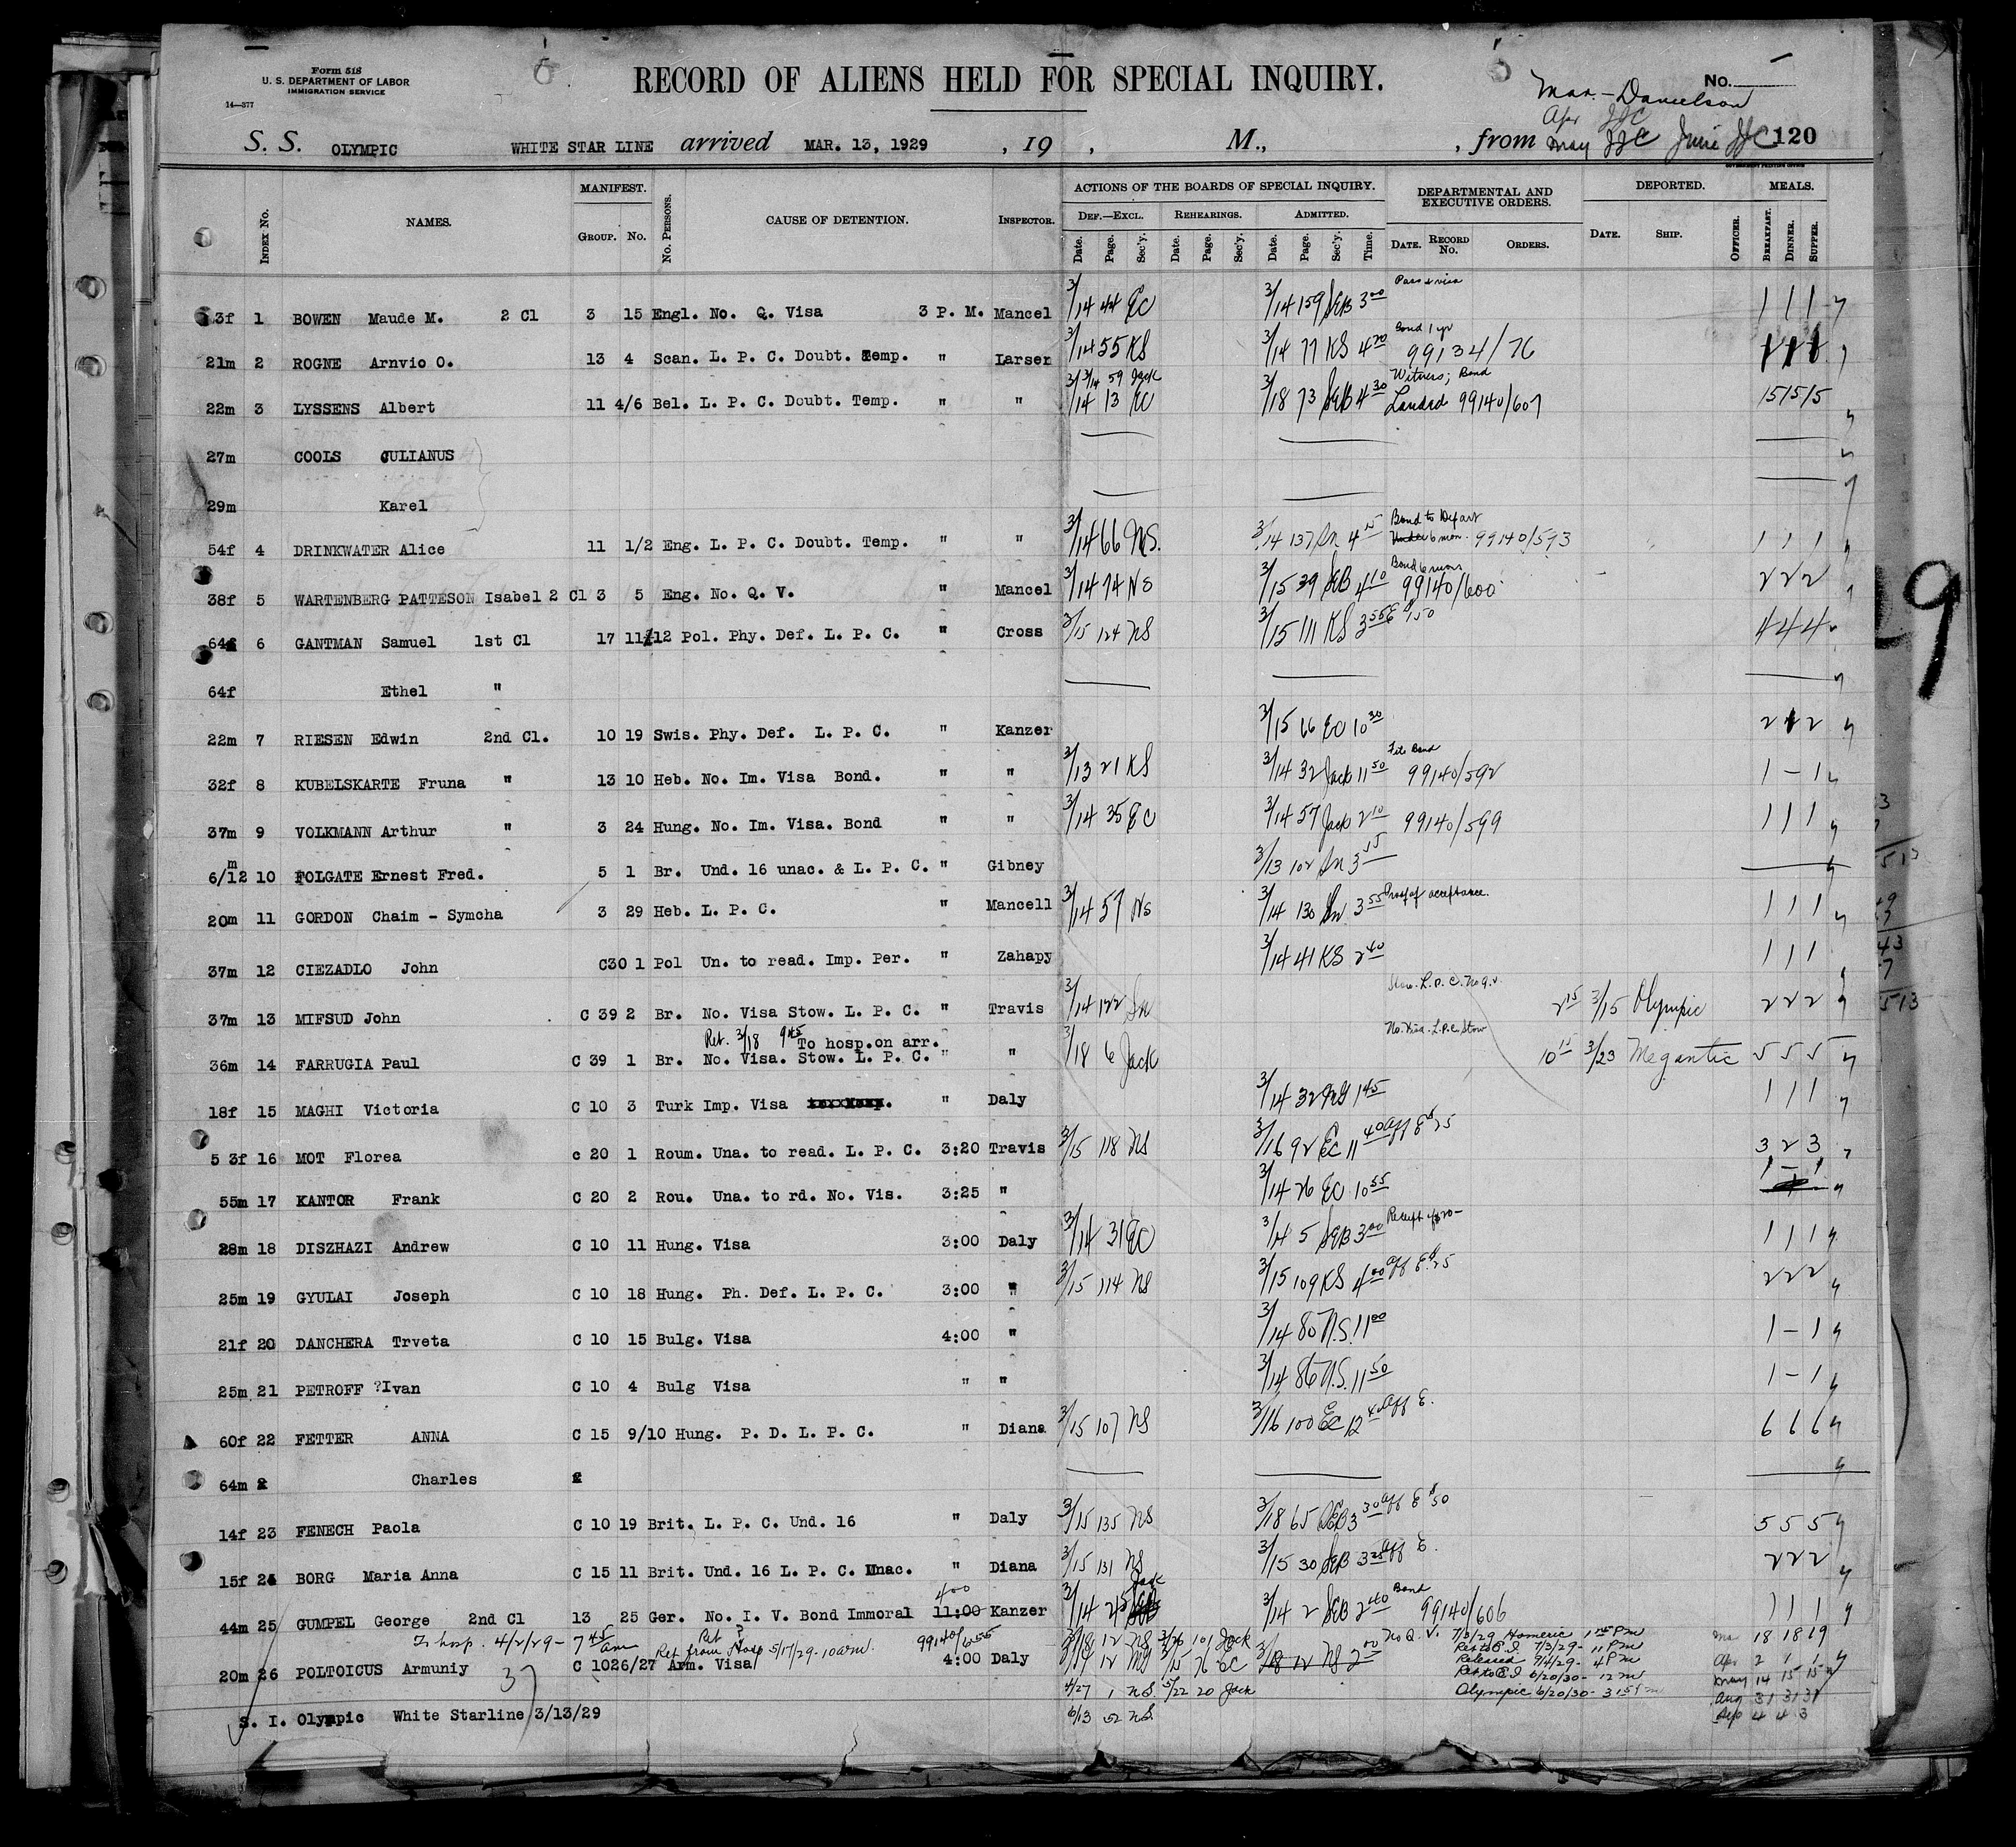 Form 518
U. S. DEPARTMENT OF LABOR
IMMIGRATION SERVICE
14—377
RECORD OF ALIENS HELD FOR SPECIAL INQUIRY.
No.
Mar. - Danielson
Apr JJC
S. S. OLYMPIC WHITE STAR LINE arrived MAR. 13, 1929 , 19 , M., , from May JJC June JJC 120
GOVERNMENT PRINTING OFFICE
Index No. NAMES. MANIFEST. Group. No. No. Persons. CAUSE OF DETENTION. Inspector. ACTIONS OF THE BOARDS OF SPECIAL INQUIRY. DEPARTMENTAL AND EXECUTIVE ORDERS. DEPORTED. MEALS.
Def.—Excl. Rehearings. Admitted.
Date. Page. Sec'y. Date. Page. Sec'y. Date. Page. Sec'y. Time. Date. Record No. Orders. Date. Ship. Officer. Breakfast. Dinner. Supper.
3f 1 BOWEN Maude M. 2 Cl 3 15 Engl. No. Q. Visa 3 P. M. Mancel 3/14 44 EC 3/14 159 SEB 3 00 Pass & visa 1 1 1
21m 2 ROGNE Arnvio O. 13 4 Scan. L. P. C. Doubt. Temp. " Larsen 3/14 55 KS 3/14 77 KS 4 20 Bond 1 yr 99134/76 1 1 1
3/14 59 Jack
22m 3 LYSSENS Albert 11 4/6 Bel. L. P. C. Doubt. Temp. " " 3/14 13 EC 3/18 73 SEB 4 30 Witness; Bond Landed 99140/607 15 15 15
27m COOLS JULIANUS
29m Karel
54f 4 DRINKWATER Alice 11 1/2 Eng. L. P. C. Doubt. Temp. " " 3/14 66 NS. 3/14 137 Sn 4 15 Bond to Depart Under 6 mon. 99140/593 1 1 1
38f 5 WARTENBERG PATTESON Isabel 2 Cl 3 5 Eng. No. Q. V. " Mancel 3/14 74 NS 3/15 39 SEB 4 10 Bond 6 mos 99140/600 2 2 2
64f 6 GANTMAN Samuel 1st Cl 17 11/12 Pol. Phy. Def. L. P. C. " Cross 3/15 124 NS 3/15 111 KS 3 55 E $150 4 4 4
64f Ethel "
22m 7 RIESEN Edwin 2nd Cl. 10 19 Swis. Phy. Def. L. P. C. " Kanzer 3/15 66 EC 10 30 2 2 2
32f 8 KUBELSKARTE Fruna " 13 10 Heb. No. Im. Visa Bond. " " 3/13 21 KS 3/14 32 Jack 11 50 Bond 99140/592 1 - 1
37m 9 VOLKMANN Arthur " 3 24 Hung. No. Im. Visa. Bond " " 3/14 35 EC 3/14 57 Jack 2 10 99140/599 1 1 1
6/12 m 10 FOLGATE Ernest Fred. 5 1 Br. Und. 16 unac. & L. P. C. " Gibney 3/13 102 Sn 3 15
20m 11 GORDON Chaim - Symcha 3 29 Heb. L. P. C. " Mancell 3/14 57 NS 3/14 130 Sn 3 55 Proof of acceptance. 1 1 1
37m 12 CIEZADLO John C30 1 Pol Un. to read. Imp. Per. " Zahapy 3/14 41 KS 2 40 1 1 1
37m 13 MIFSUD John C 39 2 Br. No. Visa Stow. L. P. C. " Travis 3/14 122 Sn Stow. L. P. C. No Q. V. 2 15 3/15 Olympic 2 2 2
Ret. 3/18 9 45 To hosp.on arr.
36m 14 FARRUGIA Paul C 39 1 Br. No. Visa. Stow. L. P. C. " " 3/18 6 Jack No. Visa. L.P.C. Stow 10 15 3/23 Megantic 5 5 5
18f 15 MAGHI Victoria C 10 3 Turk Imp. Visa " Daly 3/14 32 1 45 1 1 1
5 3f 16 MOT Florea c 20 1 Roum. Una. to read. L. P. C. 3:20 Travis 3/15 118 NS 3/16 92 EC 11 40 aff E $25 3 2 3
55m 17 KANTOR Frank C 20 2 Rou. Una. to rd. No. Vis. 3:25 " 3/14 26 EC 10 55 1 - 1
28m 18 DISZHAZI Andrew C 10 11 Hung. Visa 3:00 Daly 3/14 31 EC 3/14 5 SEB 3 00 1 1 1
25m 19 GYULAI Joseph C 10 18 Hung. Ph. Def. L. P. C. 3:00 " 3/15 114 NS 3/15 109 KS 4 00 aff E $25 2 2 2
21f 20 DANCHERA Trveta C 10 15 Bulg. Visa 4:00 " 3/14 80 N.S. 11 00 1 - 1
25m 21 PETROFF ?Ivan C 10 4 Bulg Visa " " 3/14 86 N.S. 11 50 1 - 1
60f 22 FETTER ANNA C 15 9/10 Hung. P. D. L. P. C. " Diana 3/15 107 NS 3/16 100 EC 12 40 aff E. 6 6 6
64m 2 Charles
14f 23 FENECH Paola C 10 19 Brit. L. P. C. Und. 16 " Daly 3/15 135 NS 3/18 65 SEB 3 30 aff E $50 5 5 5
15f 24 BORG Maria Anna C 15 11 Brit. Und. 16 L. P. C. Unac. " Diana 3/15 131 NS 3/15 30 SEB 3 25 aff E. 2 2 2
44m 25 GUMPEL George 2nd Cl 13 25 Ger. No. I. V. Bond Immoral 4 00 11:00 Kanzer 3/14 2 Jack 3/14 2 SEB 2 40 Bond 99140/606 1 1 1
To hosp. 4/2/29 - 7 45 am Ret from Hosp 5/17/29 - 10 am. 99140/655 3/18 12 NS 3/26 101 Jack No Q. V. 7/3/29 Homeric 1 45 PM 18 18 19
20m 26 POLTOICUS Armuniy C 10 26/27 Arm. Visa 4:00 Daly Ret to E.I. 7/3/29 - 11 PM
Released 9/4/29 - 4 PM Apr 2 1 1
Ret to E.I 6/20/30 - 12 M May 14 15 15
4/27 1 N.S. 5/22 20 Jack Olympic 6/20/30 - Aug 31 31 31
S. I. Olympic White Starline 3/13/29 6/13 52 N.S. Sep 4 4 3